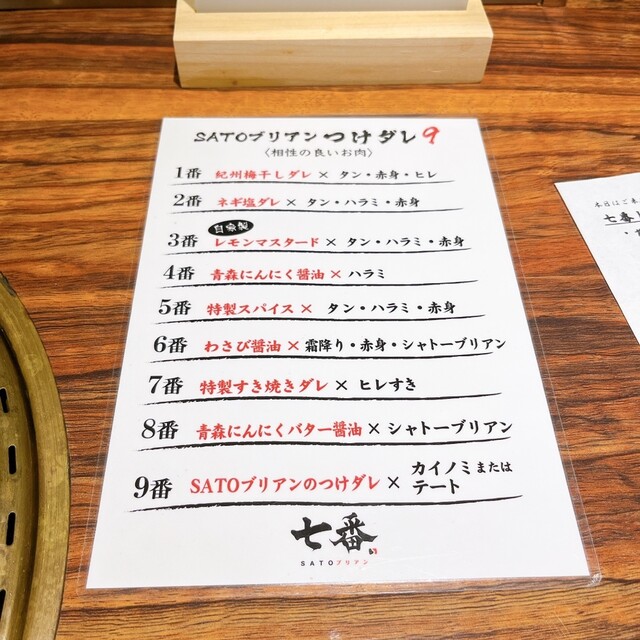 SATOブリアン つけダレ9
〈相性の良いお肉〉
1番 紀州梅干しダレ × タン・赤身・ヒレ
2番 ネギ塩ダレ × タン・ハラミ・赤身
自家製
3番 レモンマスタード × タン・ハラミ・赤身
4番 青森にんにく醤油 × ハラミ
5番 特製スパイス × タン・ハラミ・赤身
6番 わさび醤油 × 霜降り・赤身・シャトーブリアン
7番 特製すき焼きダレ × ヒレすき
8番 青森にんにくバター醤油 × シャトーブリアン
9番 SATOブリアンのつけダレ × カイノミ または
テート
七番
SATOブリアン
本日はご来
七番